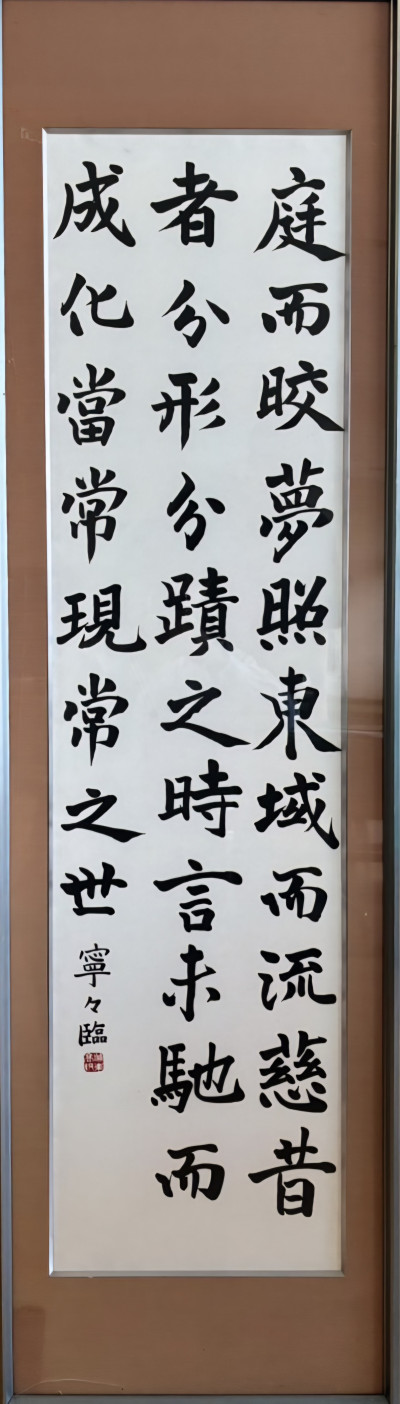 庭而晈夢照東域而流慈昔
者分形分蹟之時言未馳而
成化當常現常之世
寧々臨